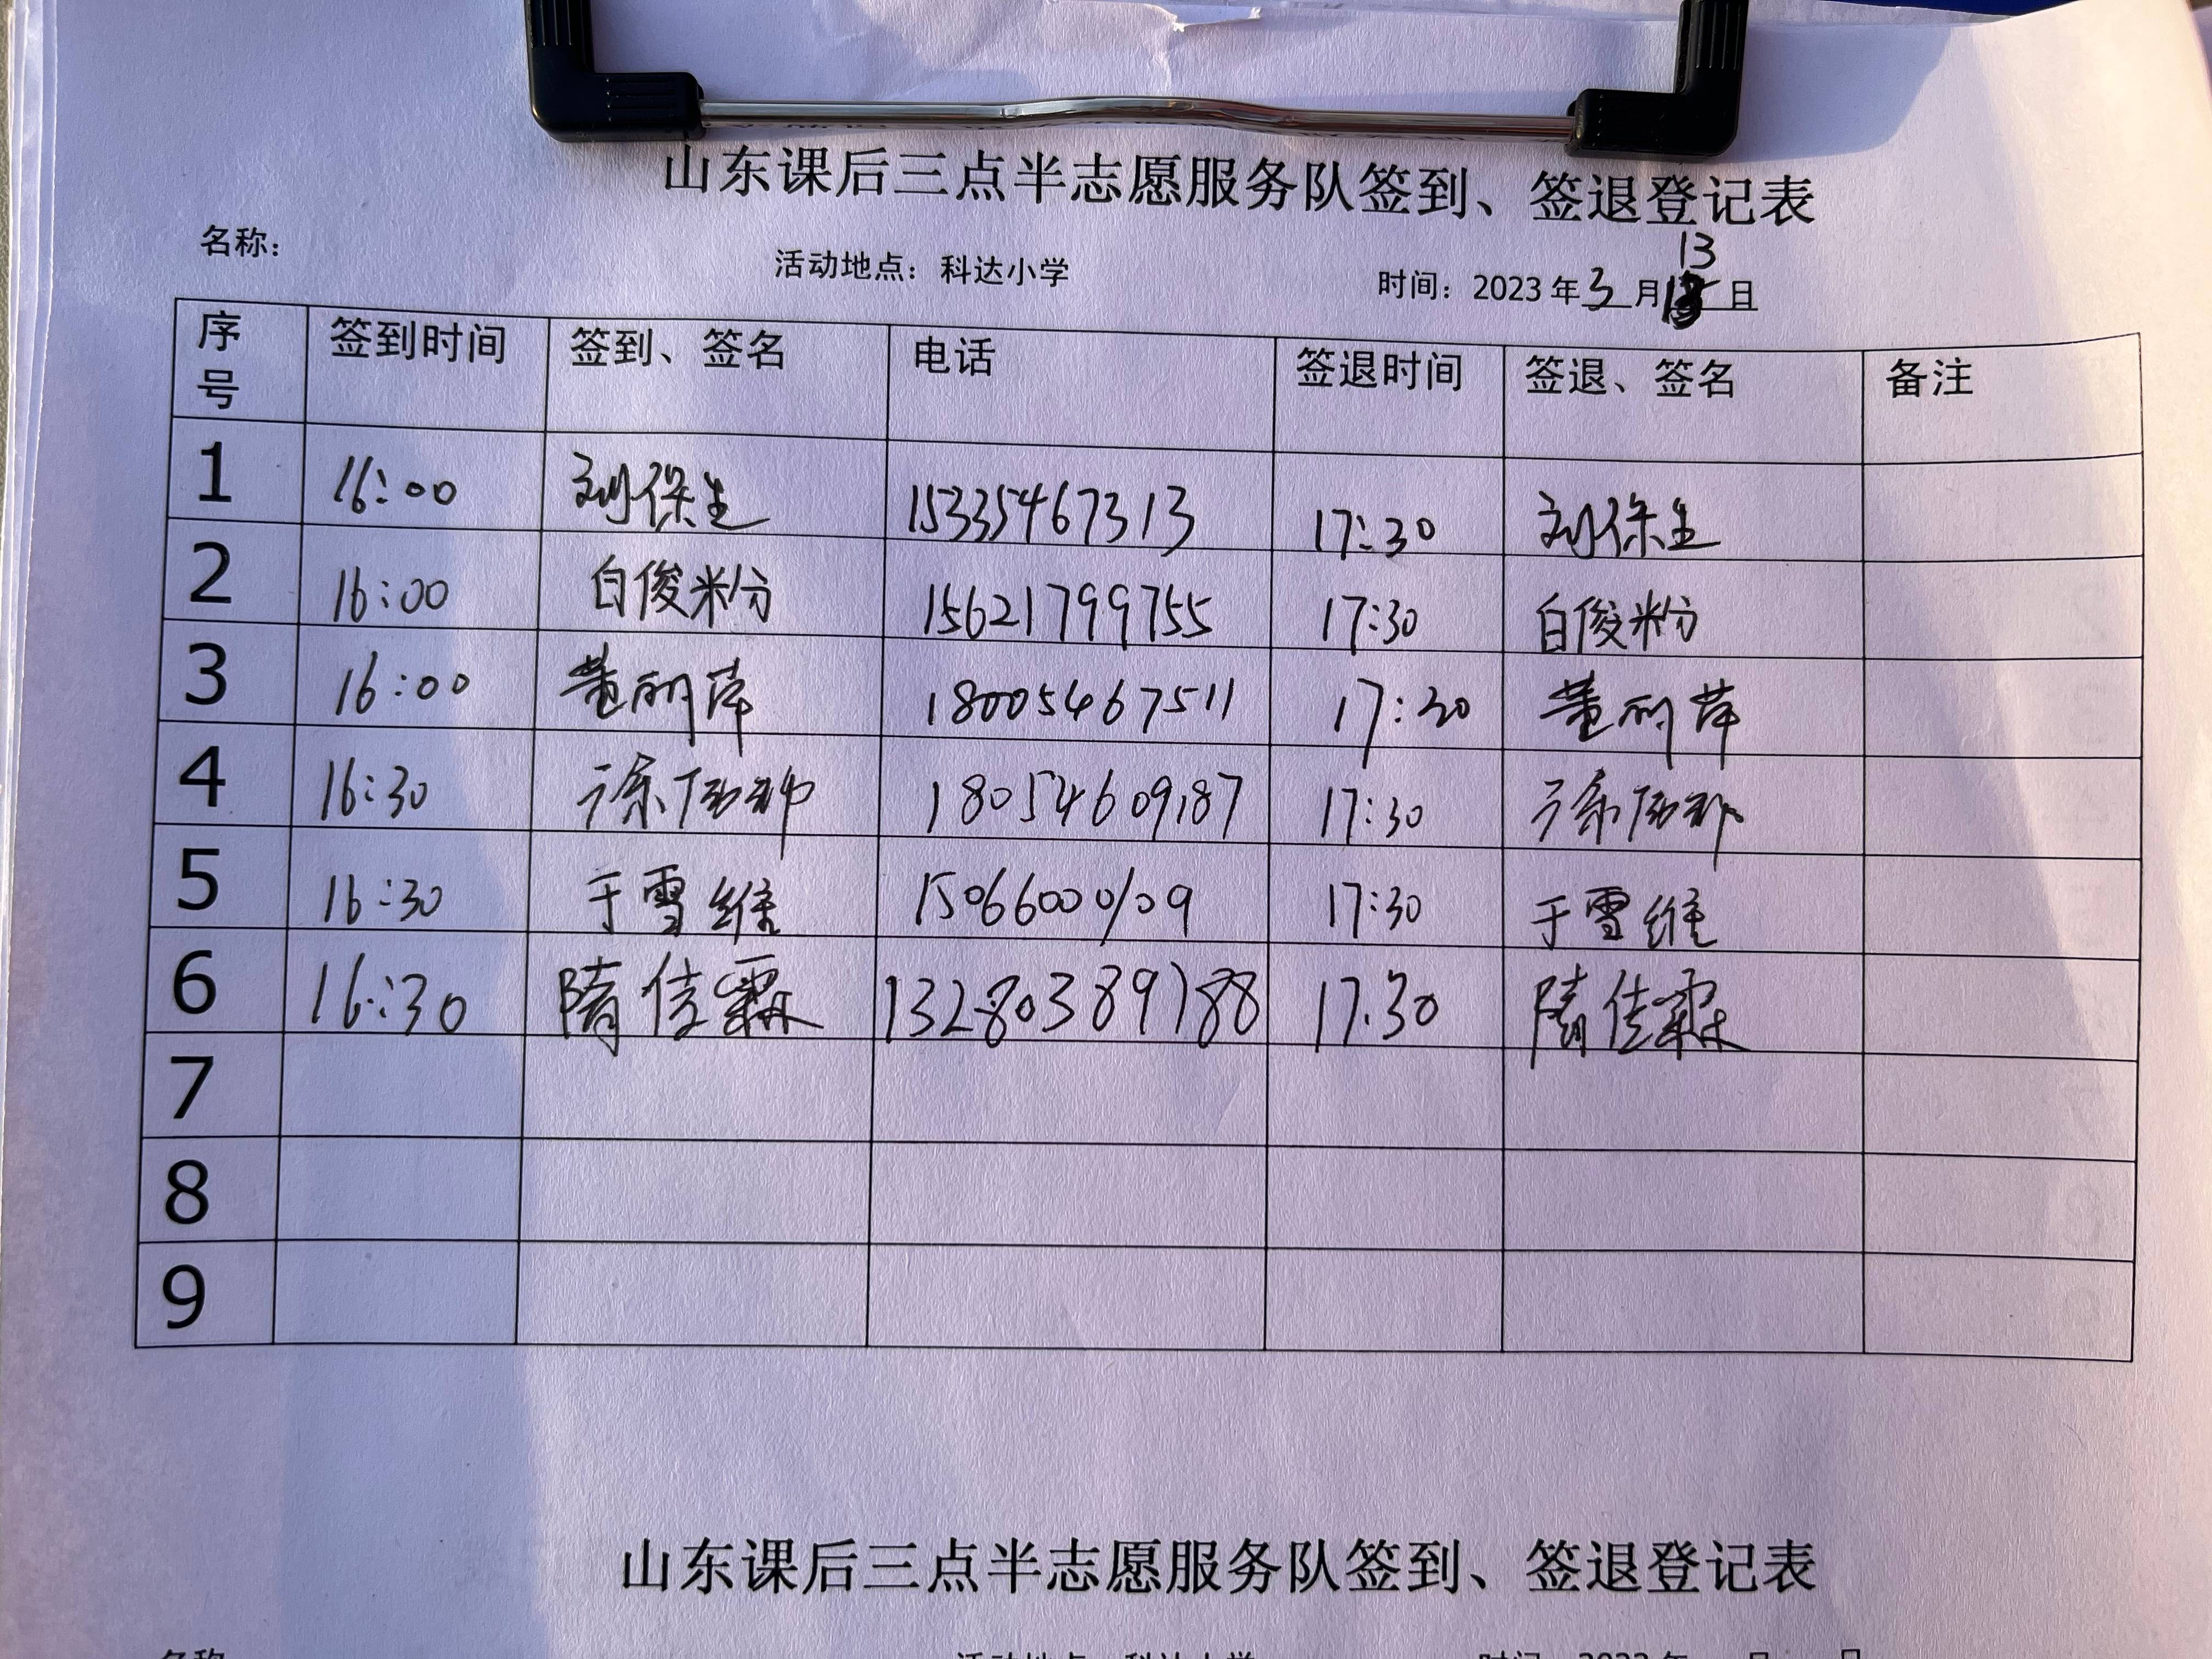 山东课后三点半志愿服务队签到、签退登记表
名称： 活动地点：科达小学 时间：2023年3月13日
序号 签到时间 签到、签名 电话 签退时间 签退、签名 备注
1 16:00 刘保生 15335467313 17:30 刘保生
2 16:00 白俊粉 15621799755 17:30 白俊粉
3 16:00 董丽萍 18005467511 17:30 董丽萍
4 16:30 18054609187 17:30
5 16:30 于雪维 15066000109 17:30 于雪维
6 16:30 隋佳霖 13280389788 17.30 隋佳霖
7
8
9
山东课后三点半志愿服务队签到、签退登记表